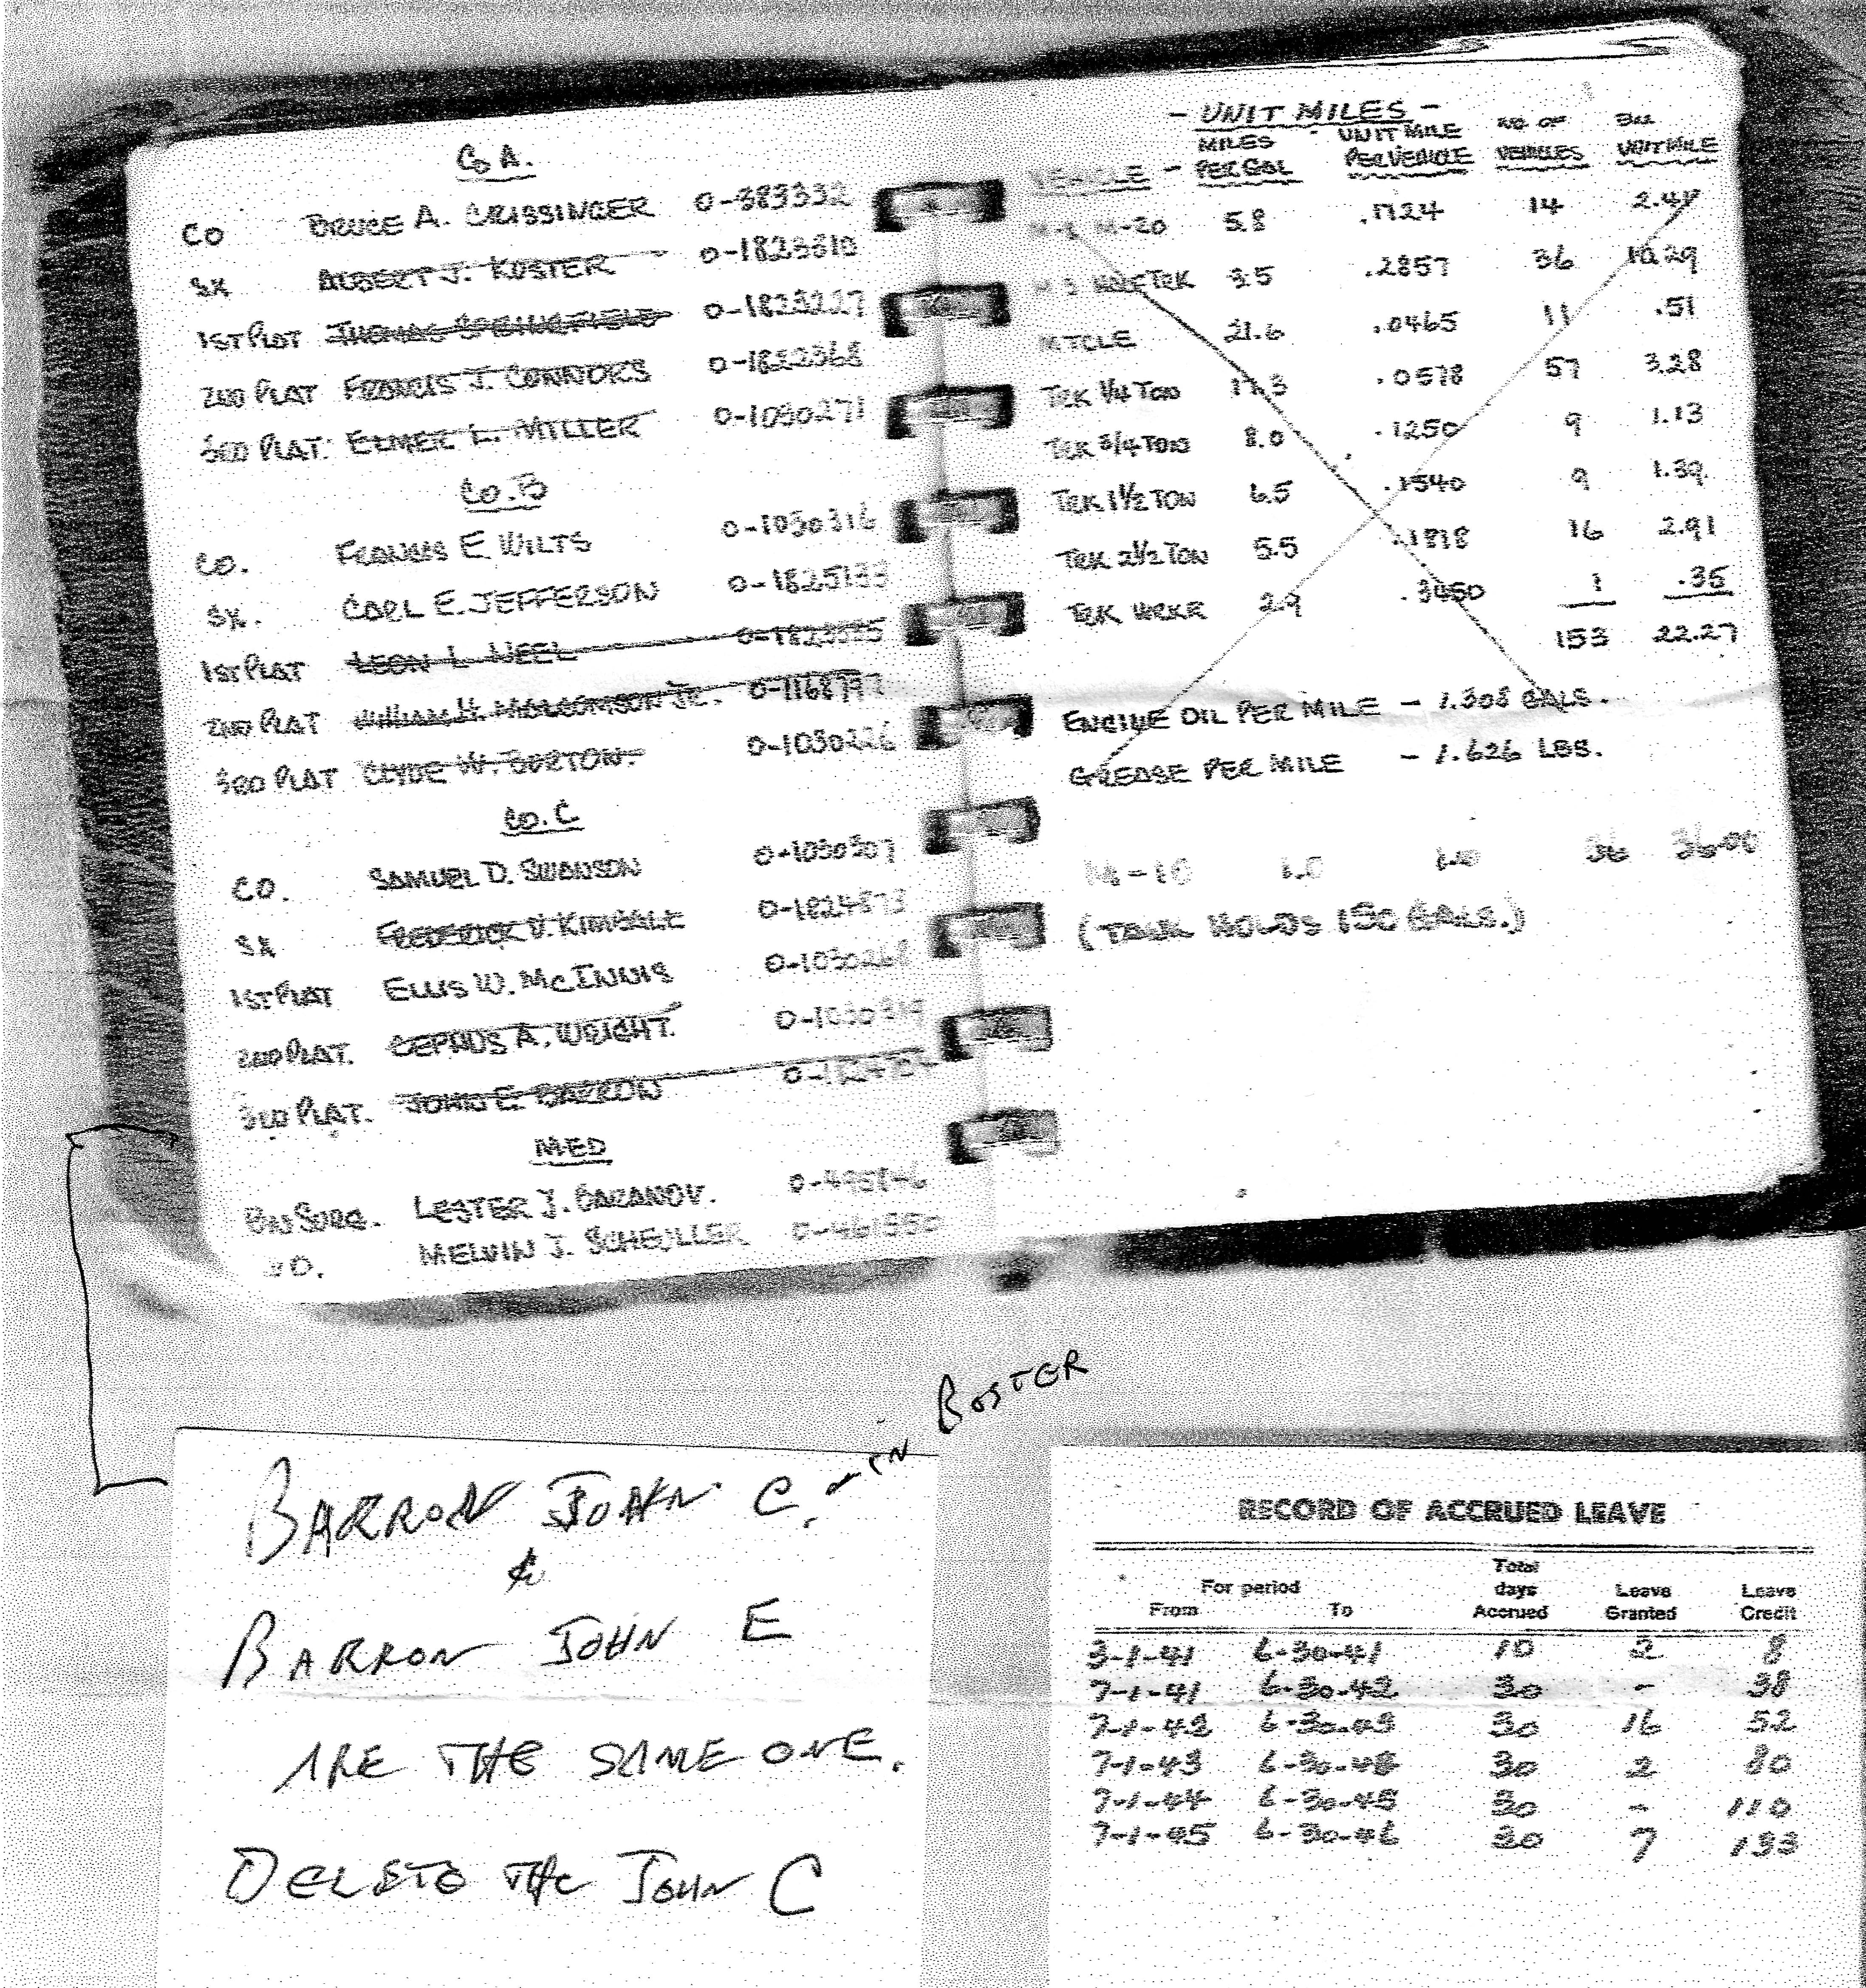 Co A.
CO BRUCE A. CRISSINGER 0-383332
SX ALBERT J. KOSTER 0-1823610
1ST PLAT THOMAS SPRINGFIELD 0-1823227
2ND PLAT FRANCIS J. CONNORS 0-1822368
3RD PLAT. ELMER L. MILLER 0-1030271
Co. B
CO. FRANCIS E. WILTS 0-1030316
SX. CARL E. JEFFERSON 0-1825133
1ST PLAT LEON L. NEEL
2ND PLAT WILLIAM H. MALCOMSON JR.
3RD PLAT CLYDE W. BURTON. 0-1030226
Co. C
CO. SAMUEL D. SWANSON 0-1030307
SX FREDERICK V. KIMBALL 0-1824873
1ST PLAT ELLIS W. McINNIS 0-1030268
2ND PLAT. CEPHUS A. WRIGHT.
3RD PLAT. JOHN E. BARRON
MED
BN SURG. LESTER J. GAZANOV.
MELVIN J. SCHEULLER 0-461550
- UNIT MILES -
VEHICLE - MILES PER GAL - UNIT MILE PER VEHICLE NO OF VEHICLES UNIT MILE
M-20 5.8 .1724 14 2.41
M 3 HALF TRK 3.5 .2857 36 10.29
MTCLE 21.6 .0465 11 .51
TRK 1/4 TON 17.3 .0578 57 3.28
TRK 3/4 TON 8.0 .1250 9 1.13
TRK 1 1/2 TON 6.5 .1540 9 1.39
TRK 2 1/2 TON 5.5 .1818 16 2.91
TRK WRKR 2.9 .3450 1 .35
153 22.27
ENGINE OIL PER MILE - 1.308 GALS.
GREASE PER MILE - 1.626 LBS.
M-10 1.0 1.0 36 36.00
(TANK HOLDS 150 GALS.)
BARRON JOHN C. - IN ROSTER
&
BARRON JOHN E
ARE THE SAME ONE.
DELETE THE JOHN C
RECORD OF ACCRUED LEAVE
For period Total days Accrued Leave Granted Leave Credit
From To
3-1-41 6-30-41 10 2 8
7-1-41 6-30-42 30 - 38
7-1-42 6-30-43 30 16 52
7-1-43 30 2 80
7-1-44 6-30-45 30 - 110
7-1-45 6-30-46 30 7 133